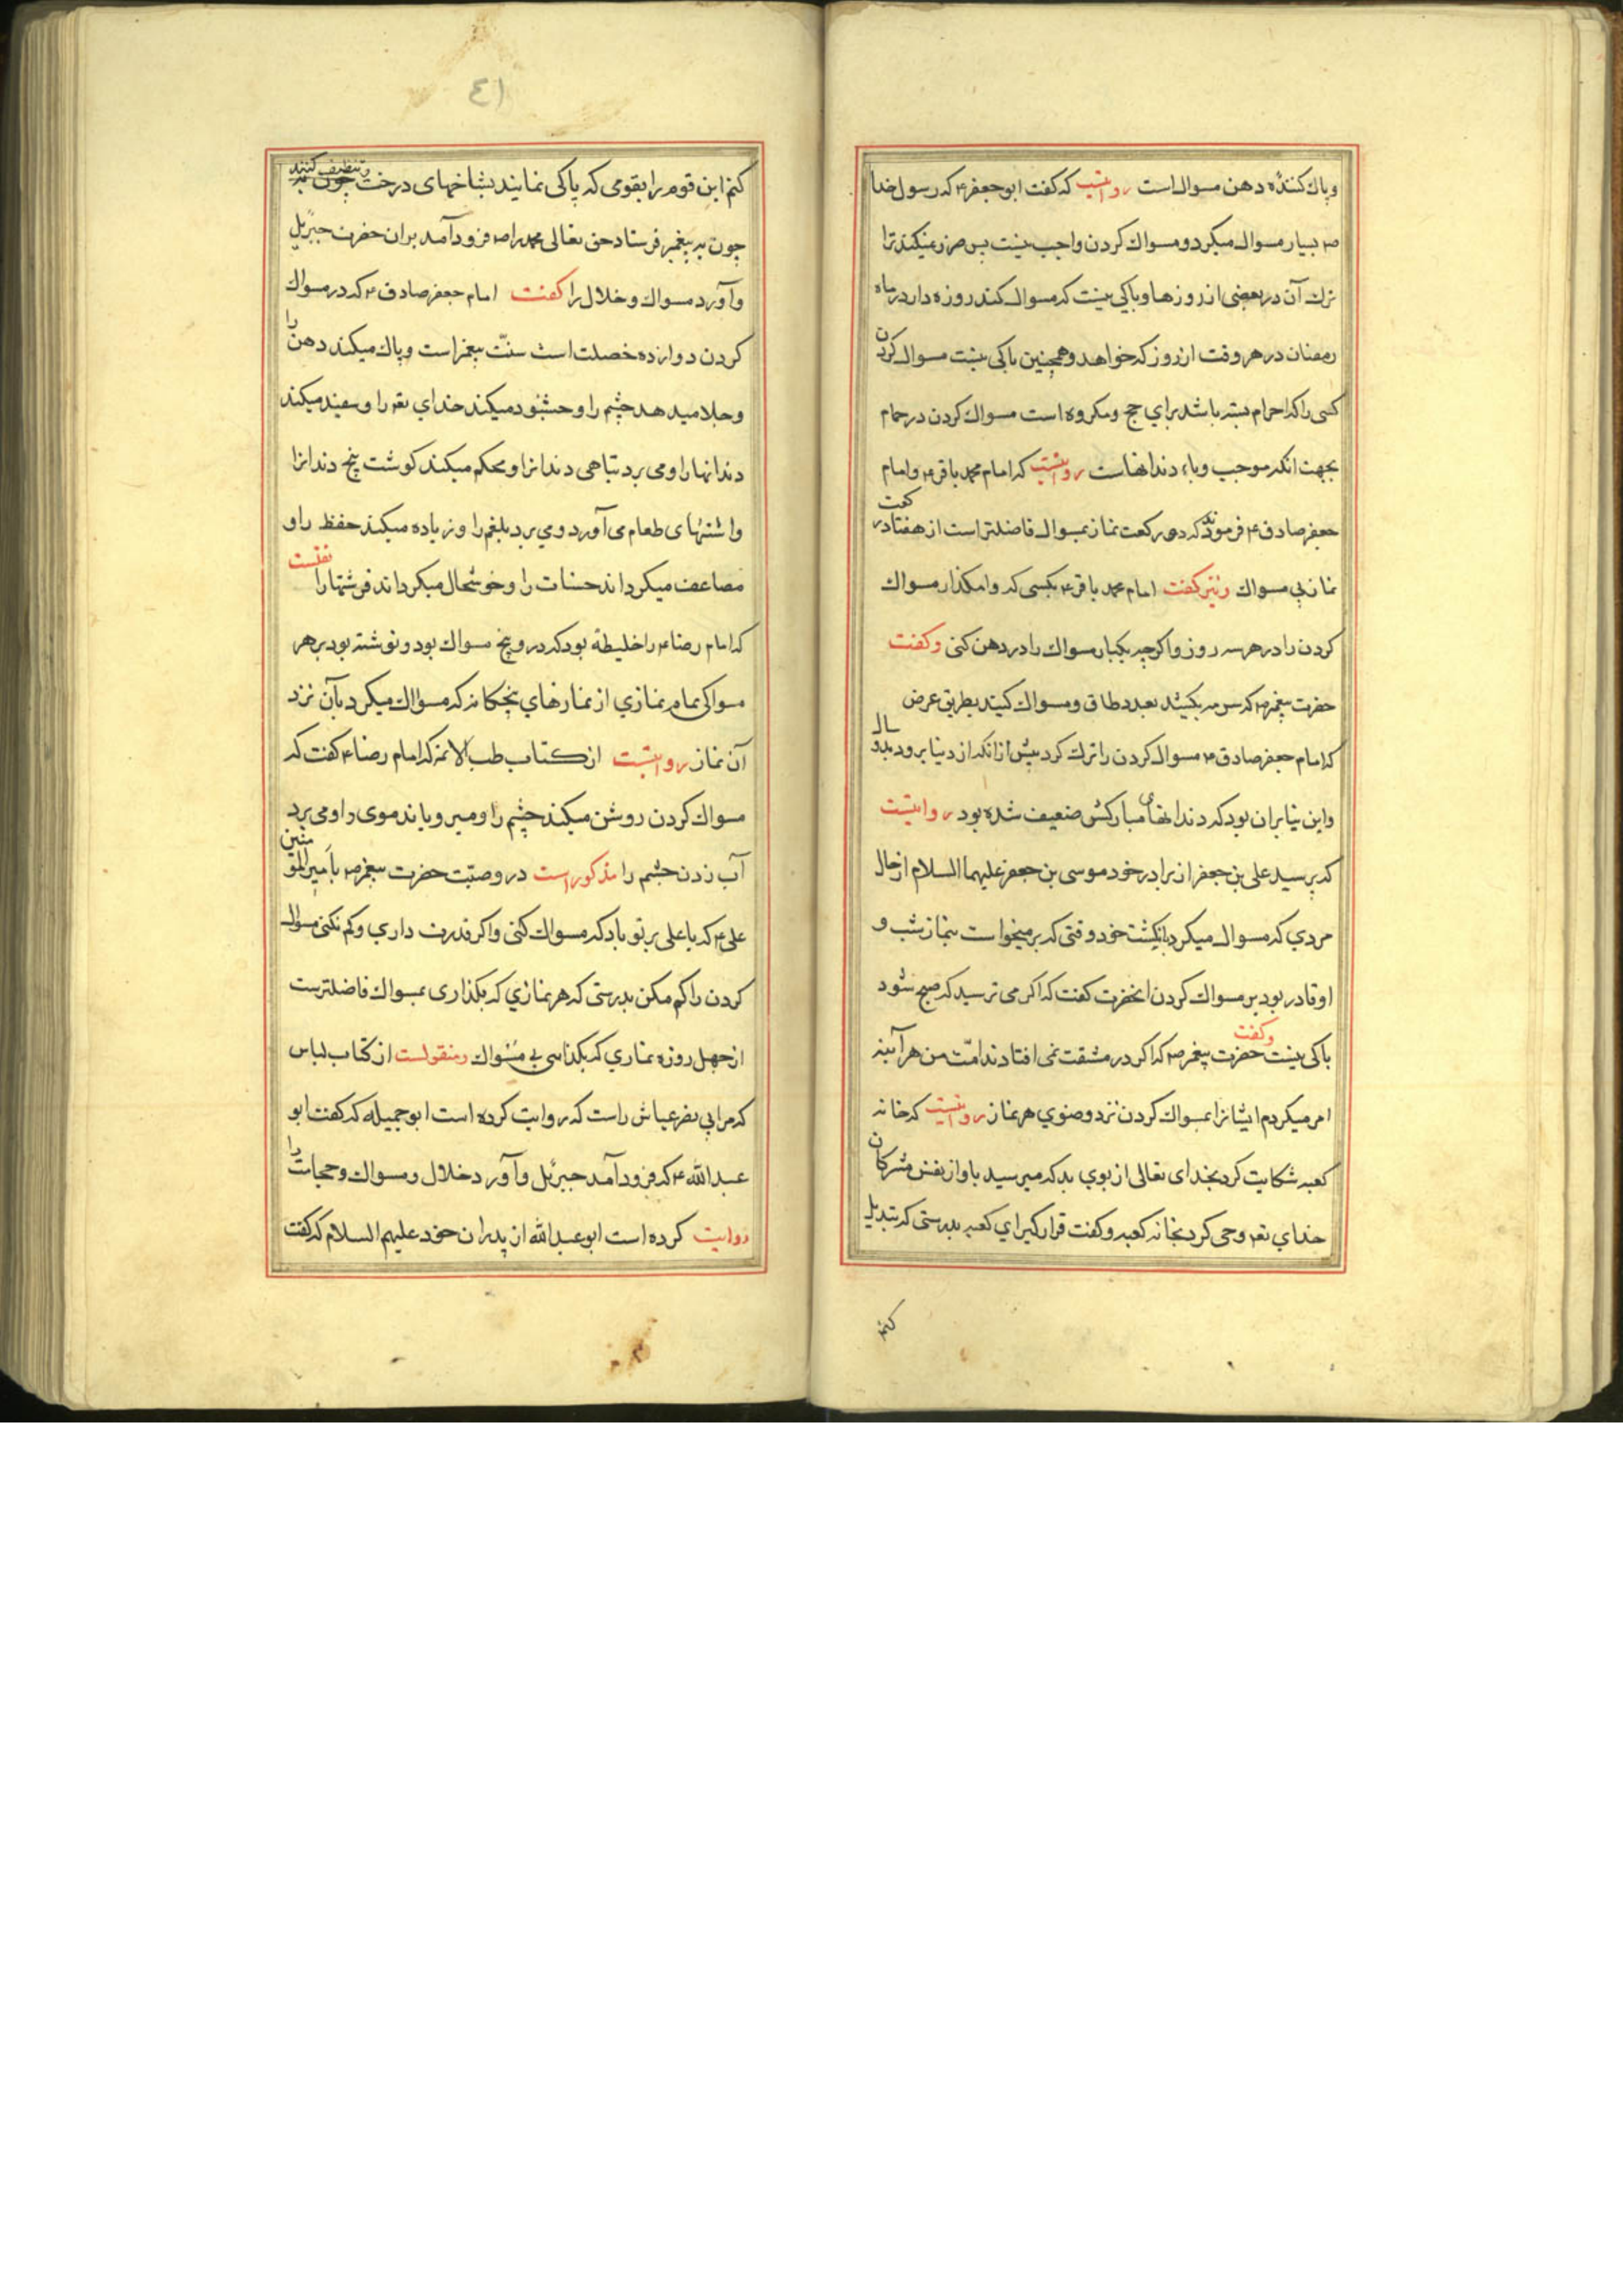 وپاك كننده دهن مسواك است روایتست كه گفت ابوجعفر ع كه رسول خدا
ص بسیار مسواك میكرد و مسواك كردن واجب نیست پس ضرر نمیكند ترا
ترك آن در بعضی از روزها و باكی نیست كه مسواك كند روزه دار در ماه
رمضان در هر وقت از روز كه خواهد و همچنین باكی نیست مسواك كردن
كسی را كه احرام بسته باشد برای حج و مكروه است مسواك كردن در حمام
بجهت انكه موجب وباء دندانهاست روایتست كه امام محمد باقر ع و امام
جعفر صادق ع فرمودند كه دو ركعت نماز بمسواك فاضلتر است از هفتاد ركعت
نماز بی مسواك و نیز گفت امام محمد باقر ع بكسی كه وامگذار مسواك
كردن را در هر سه روز و اگرچه یكبار مسواك را در دهن كنی و گفت
حضرت پیغمبر ص كه سرمه بكشید بعدد طاق و مسواك كنید بطریق عرض
كه امام جعفر صادق ع مسواك كردن را ترك كرد پیش از انكه از دنیا برود بدو سال
و این بنا بران بود كه دندانهای مباركش ضعیف شده بود روایتست
كه پرسید علی بن جعفر از برادر خود موسی بن جعفر علیهما السلام از حال
مردي كه مسواك میكرد بانگشت خود وقتی كه بر میخواست بنماز شب و
او قادر بود بر مسواك كردن انحضرت گفت كه اگر می ترسید كه صبح شود
باكی نیست و گفت حضرت پیغمبر ص كه اگر در مشقت نمی افتادند امّت من هر آینه
امر میكردم ایشانرا بمسواك كردن نزد وضوي هر نماز روایتست كه خانه
كعبه شكایت كرد بخدای تعالی از بوي بد كه میرسید باو از نفس مشركان
خداي تعم وحی كرد بخانه كعبه و گفت قرار گیر اي كعبه بدرستی كه تبدیل
كنم
٤١
كنم این قوم را بقومی كه پاكی نمایند بشاخهای درخت و تنظیف كنند
چون به پیغمبر فرستاد حق تعالی محمد را ص فرود آمد بران حضرت جبرئیل
و آورد مسواك و خلال را گفت امام جعفر صادق ع كه در مسواك
كردن دوازده خصلت است سنّت پیغمبر است و پاك میكند دهن را
و جلا میدهد چشم را و خشنود میكند خداي تعم را و سفید میكند
دندانها را و می برد تباهی دندانرا و محكم میكند گوشت بیخ دندانرا
و اشتهای طعام می آورد و می برد بلغم را و زیاده میكند حفظ را و
مضاعف میگرداند حسنات را و خوشحال میگرداند فرشتها را نقلست
كه امام رضا ع را خلیطهٔ بود كه در و پنج مسواك بود و نوشته بود بر هر
مسواكی نام نمازي از نمازهاي پنجگانه كه مسواك میكرد بآن نزد
آن نماز روایتست از كتاب طب الائمه كه امام رضا ع گفت كه
مسواك كردن روشن میكند چشم را و میرویاند موی را و می برد
آب زدن چشم را مذكور است در وصیّت حضرت پیغمبر ص با امیر المؤمنین
علی ع كه یا علی بر تو باد كه مسواك كنی و اگر قدرت داري و كم نكنی مسواك
كردن را كم مكن بدرستی كه هر نمازي كه بگذاری بمسواك فاضلترست
از چهل روزه نمازي كه بگذاری بی مسواك و منقولست از كتاب لباس
كه مر ابی نضر عیاش راست كه روایت كرده است ابو جمیله كه گفت ابو
عبد الله ع كه فرود آمد جبرئیل و آورد خلال و مسواك و حجامت را
روایت كرده است ابو عبد الله از پدران خود علیهم السلام كه گفت